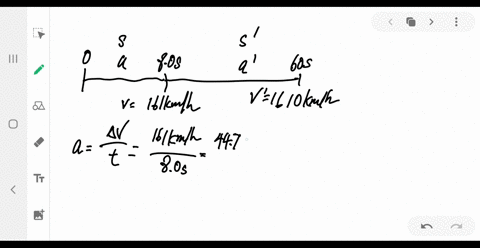 s s'
0 a 8.0s a' 60s
v= 161km/h v'=1610km/h
a = ΔV/t = 161km/h/8.0s = 44.7
Tт